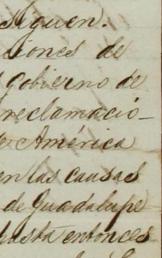 siguen.
iones de
Gobierno de
reclamació-
América
en las causas
de Guadalupe
hasta entonces